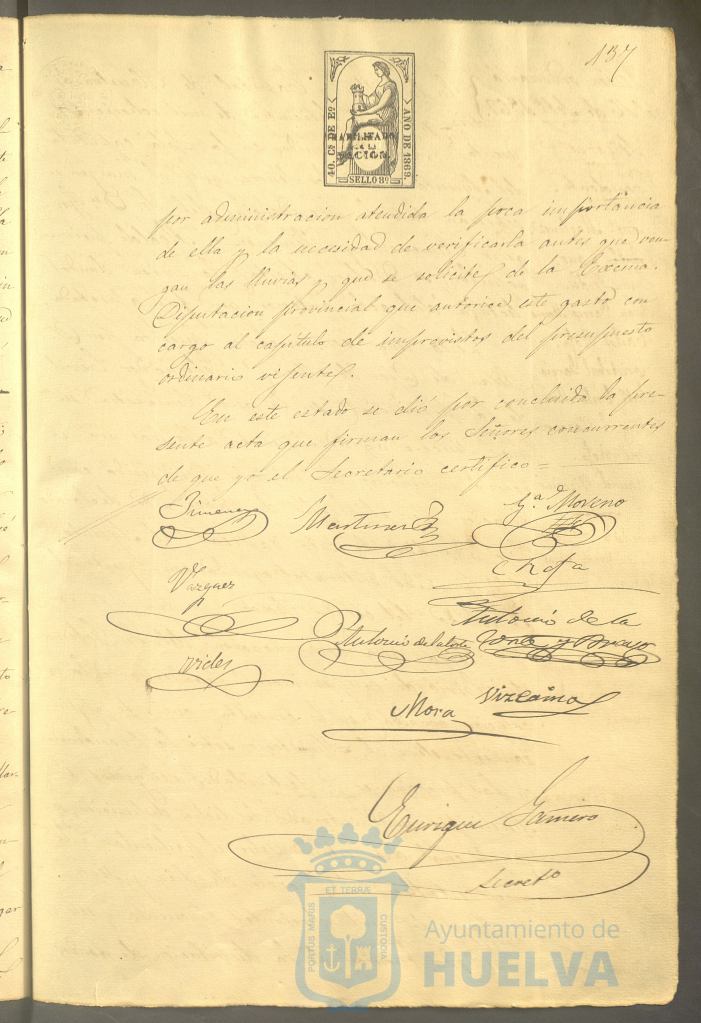 137
40. Cs. DE Eo.
AÑO DE 1869.
HABILITADO
POR LA
NACION.
SELLO 8º
por administracion atendida la poca importancia
de ella y la necesidad de verificarla antes que ven-
gan las lluvias y que se solicite de la Excma.
Diputacion provincial que autorice este gasto con
cargo al capítulo de imprevistos del presupuesto
ordinario vigente.
En este estado se dió por concluida la pre-
sente acta que firman los Señores concurrentes
de que yo el Secretario certifico =
Jimenez
Martinez
Gª. Moreno
Vazquez
Antonio de la
Antonio de la Corte
Corte y Bravo
Vides
Mora
Vizcaino
Enrique Gamero
Secretº
ET TERRÆ
PORTUS MARIS
CUSTODIA
Ayuntamiento de
HUELVA